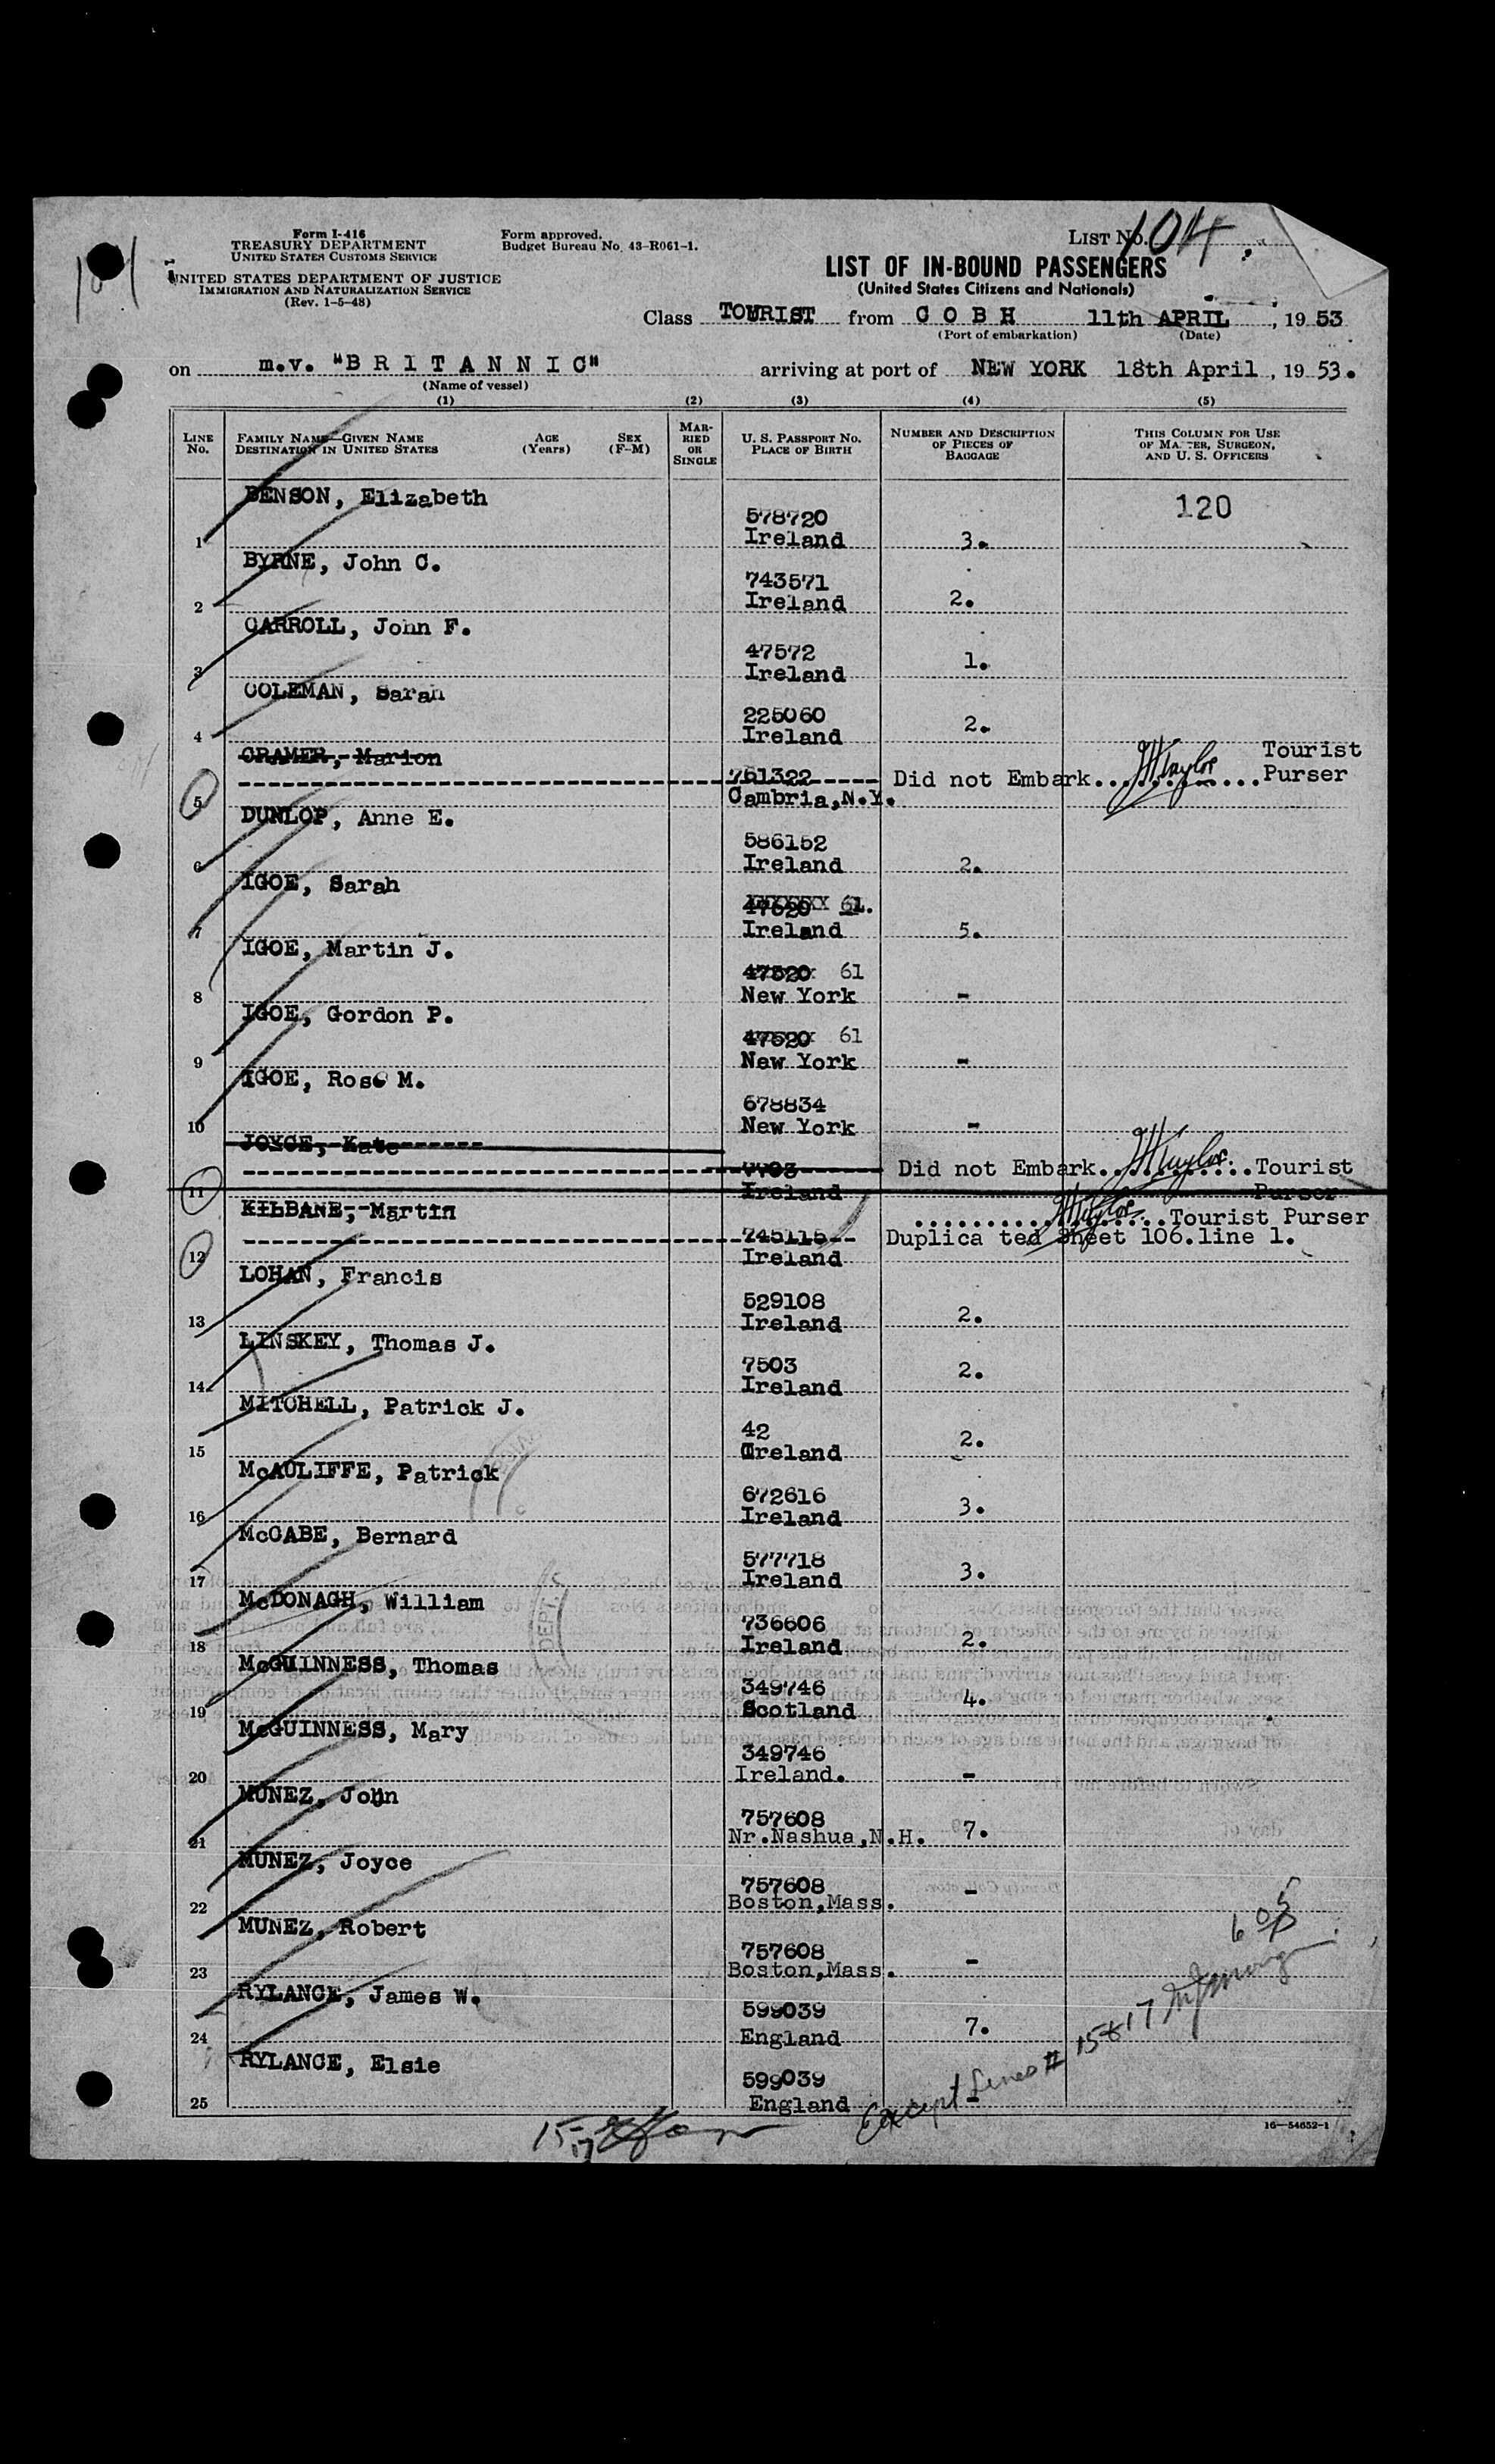 104
Form I-416
TREASURY DEPARTMENT
UNITED STATES CUSTOMS SERVICE
UNITED STATES DEPARTMENT OF JUSTICE
IMMIGRATION AND NATURALIZATION SERVICE
(Rev. 1-5-48)
Form approved.
Budget Bureau No. 43-R061-1.
LIST No. 104
LIST OF IN-BOUND PASSENGERS
(United States Citizens and Nationals)
Class TOURIST from C O B H 11th APRIL, 19 53
(Port of embarkation) (Date)
on m.v. "B R I T A N N I C" arriving at port of NEW YORK 18th April, 19 53.
(Name of vessel)
(1) (2) (3) (4) (5)
LINE No. FAMILY NAME—GIVEN NAME DESTINATION IN UNITED STATES AGE (Years) SEX (F-M) MARRIED OR SINGLE U. S. PASSPORT NO. PLACE OF BIRTH NUMBER AND DESCRIPTION OF PIECES OF BAGGAGE THIS COLUMN FOR USE OF MASTER, SURGEON, AND U. S. OFFICERS
BENSON, Elizabeth 120
578720
1 Ireland 3.
BYRNE, John C.
743571
2 Ireland 2.
CARROLL, John F.
47572
3 Ireland 1.
COLEMAN, Sarah
225060
4 Ireland 2.
CRAMER, Marion Tourist
761322 Did not Embark Purser
5 Cambria, N.Y.
DUNLOP, Anne E.
586152
6 Ireland 2.
IGOE, Sarah
47520 61.
7 Ireland 5.
IGOE, Martin J.
47520 61
8 New York -
IGOE, Gordon P.
47520 61
9 New York -
IGOE, Rose M.
678834
10 New York -
JOYCE, Kate
7703 Did not Embark Tourist
11 Ireland Purser
KILBANE, Martin Tourist Purser
745115 Duplica ted Sheet 106.line 1.
12 Ireland
LOHAN, Francis
529108
13 Ireland 2.
LINSKEY, Thomas J.
7503
14 Ireland 2.
MITCHELL, Patrick J.
42
15 Ireland 2.
McAULIFFE, Patrick
672616
16 Ireland 3.
McCABE, Bernard
577718
17 Ireland 3.
McDONAGH, William
736606
18 Ireland 2.
McGUINNESS, Thomas
349746
19 Scotland 4.
McGUINNESS, Mary
349746
20 Ireland. -
MUNEZ, John
757608
21 Nr.Nashua,N.H. 7.
MUNEZ, Joyce
757608
22 Boston,Mass. -
MUNEZ, Robert
757608
23 Boston,Mass. -
RYLANCE, James W.
599039
24 England 7.
RYLANCE, Elsie
599039
25 England -
Except Lines # 15 & 17
15-17
16—54652-1